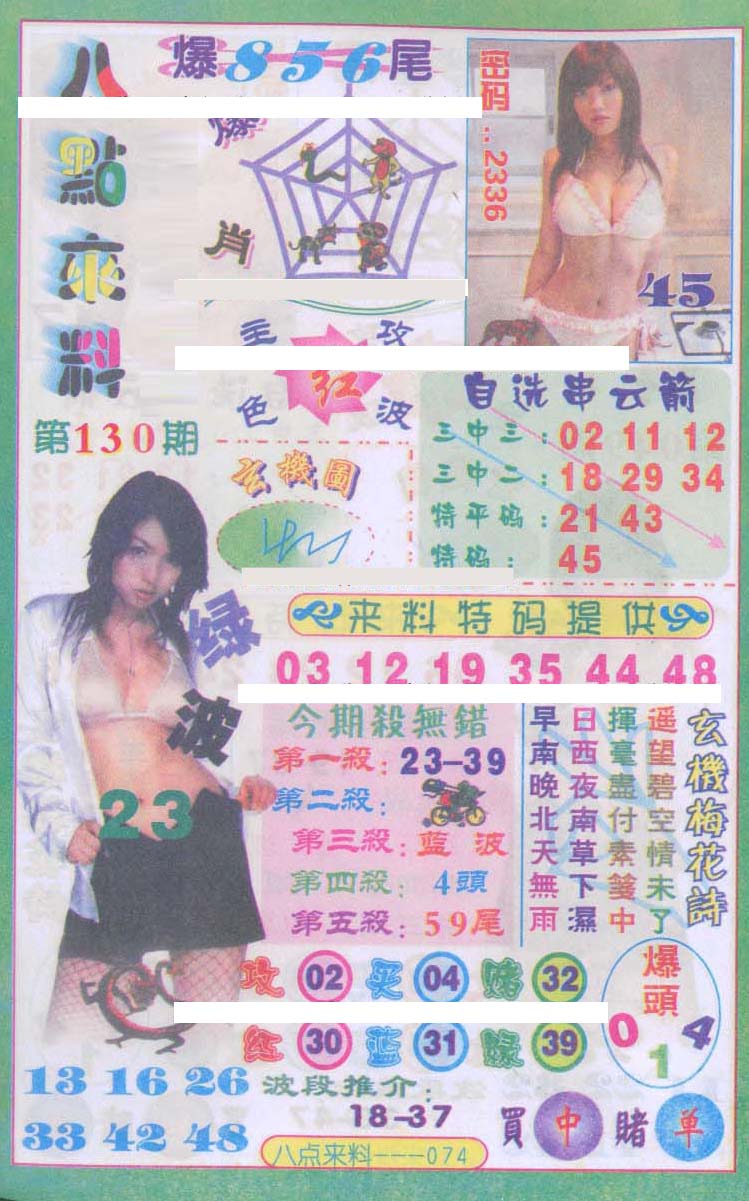 八點來料
爆856尾
爆肖
密码：2336
45
主攻
红
色波
第130期
玄機圖
自选串云箭
三中三：02 11 12
三中二：18 29 34
特平码：21 43
特码：45
绿波
23
来料特码提供
03 12 19 35 44 48
今期殺無錯
第一殺：23-39
第二殺：
第三殺：藍波
第四殺：4頭
第五殺：59尾
玄機梅花詩
遥望碧空情未了
揮毫盡付素箋中
日西夜南草下濕
早南晚北天無雨
攻 02 买 04 赌 32
红 30 蓝 31 绿 39
爆頭
0 1 4
13 16 26
33 42 48
波段推介：
18-37
買中賭单
八点来料---074